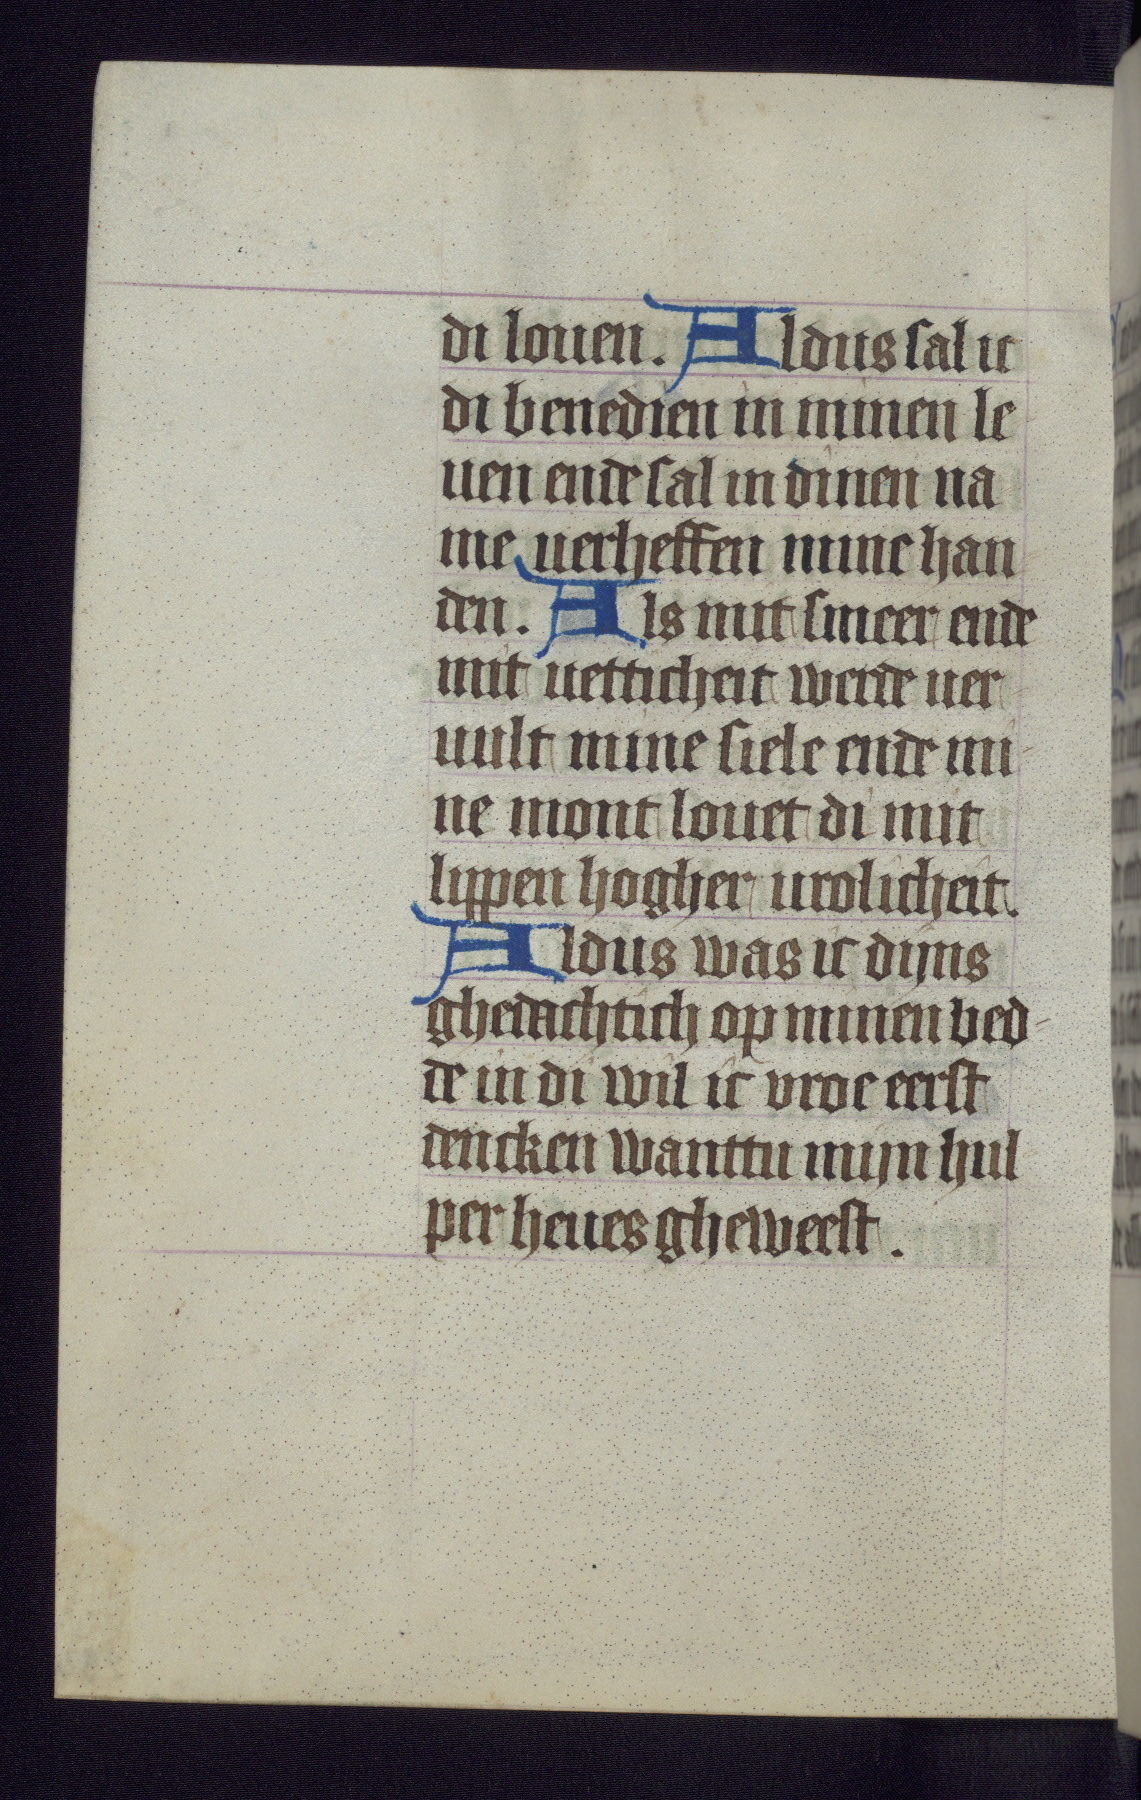 di louen. Aldus sal ic
di benedien in minen le
uen ende sal in dinen na
me uerheffen mine han
den. Als mit smeer ende
mit uetticheit werde uer
uult mine siele ende mi
ne mont louet di mit
lippen hogher urolicheit.
Aldus was ic dijns
ghedachtich op minen bed-
de in di wil ic vroe eerst
dencken wanttu mijn hul
per heues gheweest.